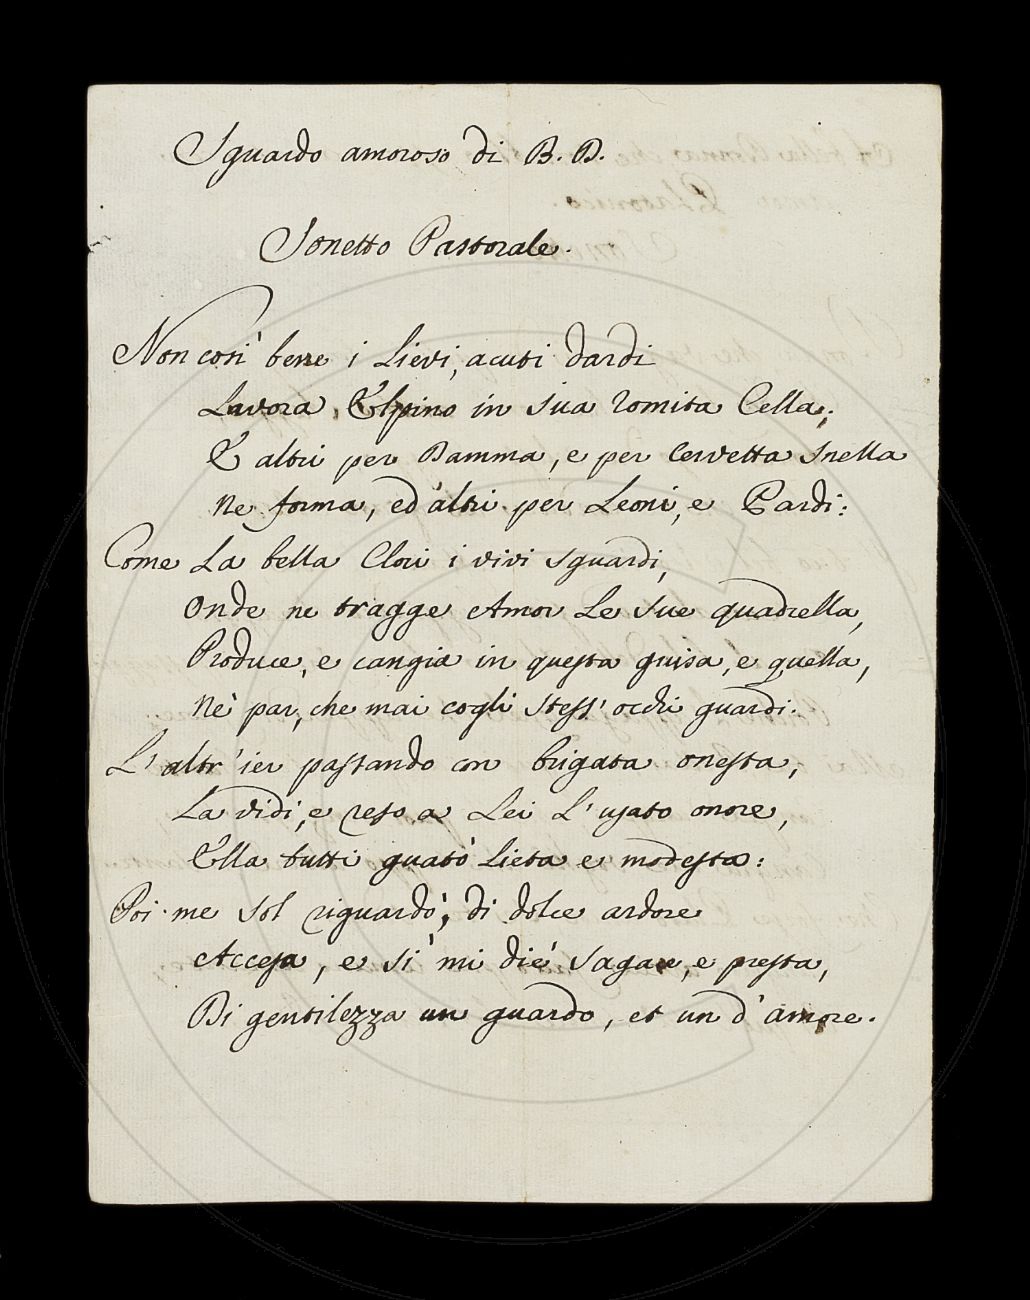 Sguardo amoroso di B. D.
Sonetto Pastorale.
Non così bene i lievi, acuti dardi
Lavora Elpino in sua romita Cella;
E altri per Damma, e per Cervetta snella
Ne forma, ed altri per Leoni, e Pardi:
Come la bella Clori i vivi sguardi,
Onde ne tragge Amor le sue quadrella,
Produce, e cangia in questa guisa, e quella,
Nè par, che mai cogli stess' occhi guardi.
L'altr'ier passando con brigata onesta,
La vidi, e reso a Lei l'usato onore,
Ella tutti guatò lieta e modesta:
Poi me sol riguardò; di dolce ardore
Accesa, e sì mi diè sagace, e presta,
Di gentilezza un guardo, et un d'amore.